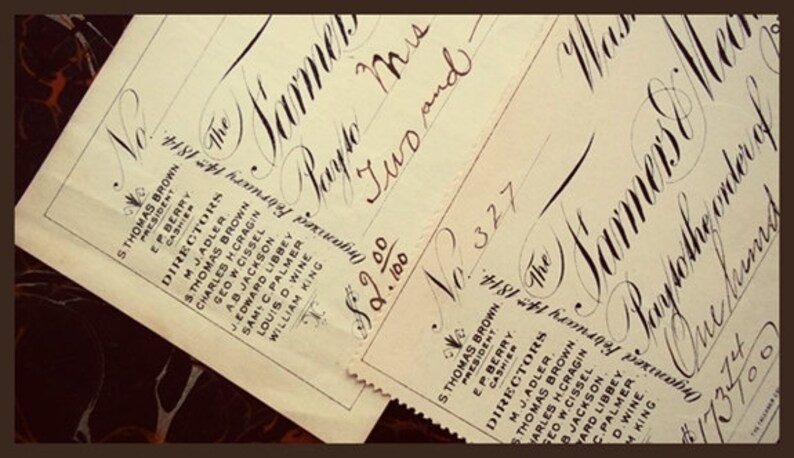 No.
The Farmers
Pay to
Mrs
Two and
Organized February 14th 1814.
S. THOMAS BROWN.
PRESIDENT
E. P. BERRY.
CASHIER
DIRECTORS
M. J. ADLER.
S. THOMAS BROWN
CHARLES H. CRAGIN
GEO. W. CISSEL
A. B. JACKSON.
J. EDWARD LIBBEY
SAML. C. PALMER.
LOUIS D. WINE.
WILLIAM KING
$2 00/100
Was
No. 327
The Farmers & Mec
Pay to the order of
One hund
Organized February 14th 1814.
S. THOMAS BROWN.
PRESIDENT
E. P. BERRY.
CASHIER
DIRECTORS
M. J. ADLER.
S. THOMAS BROWN
CHARLES H. CRAGIN
GEO. W. CISSEL
B. JACKSON.
WARD LIBBEY
C. PALMER.
D. WINE.
M KING
$173 74/00